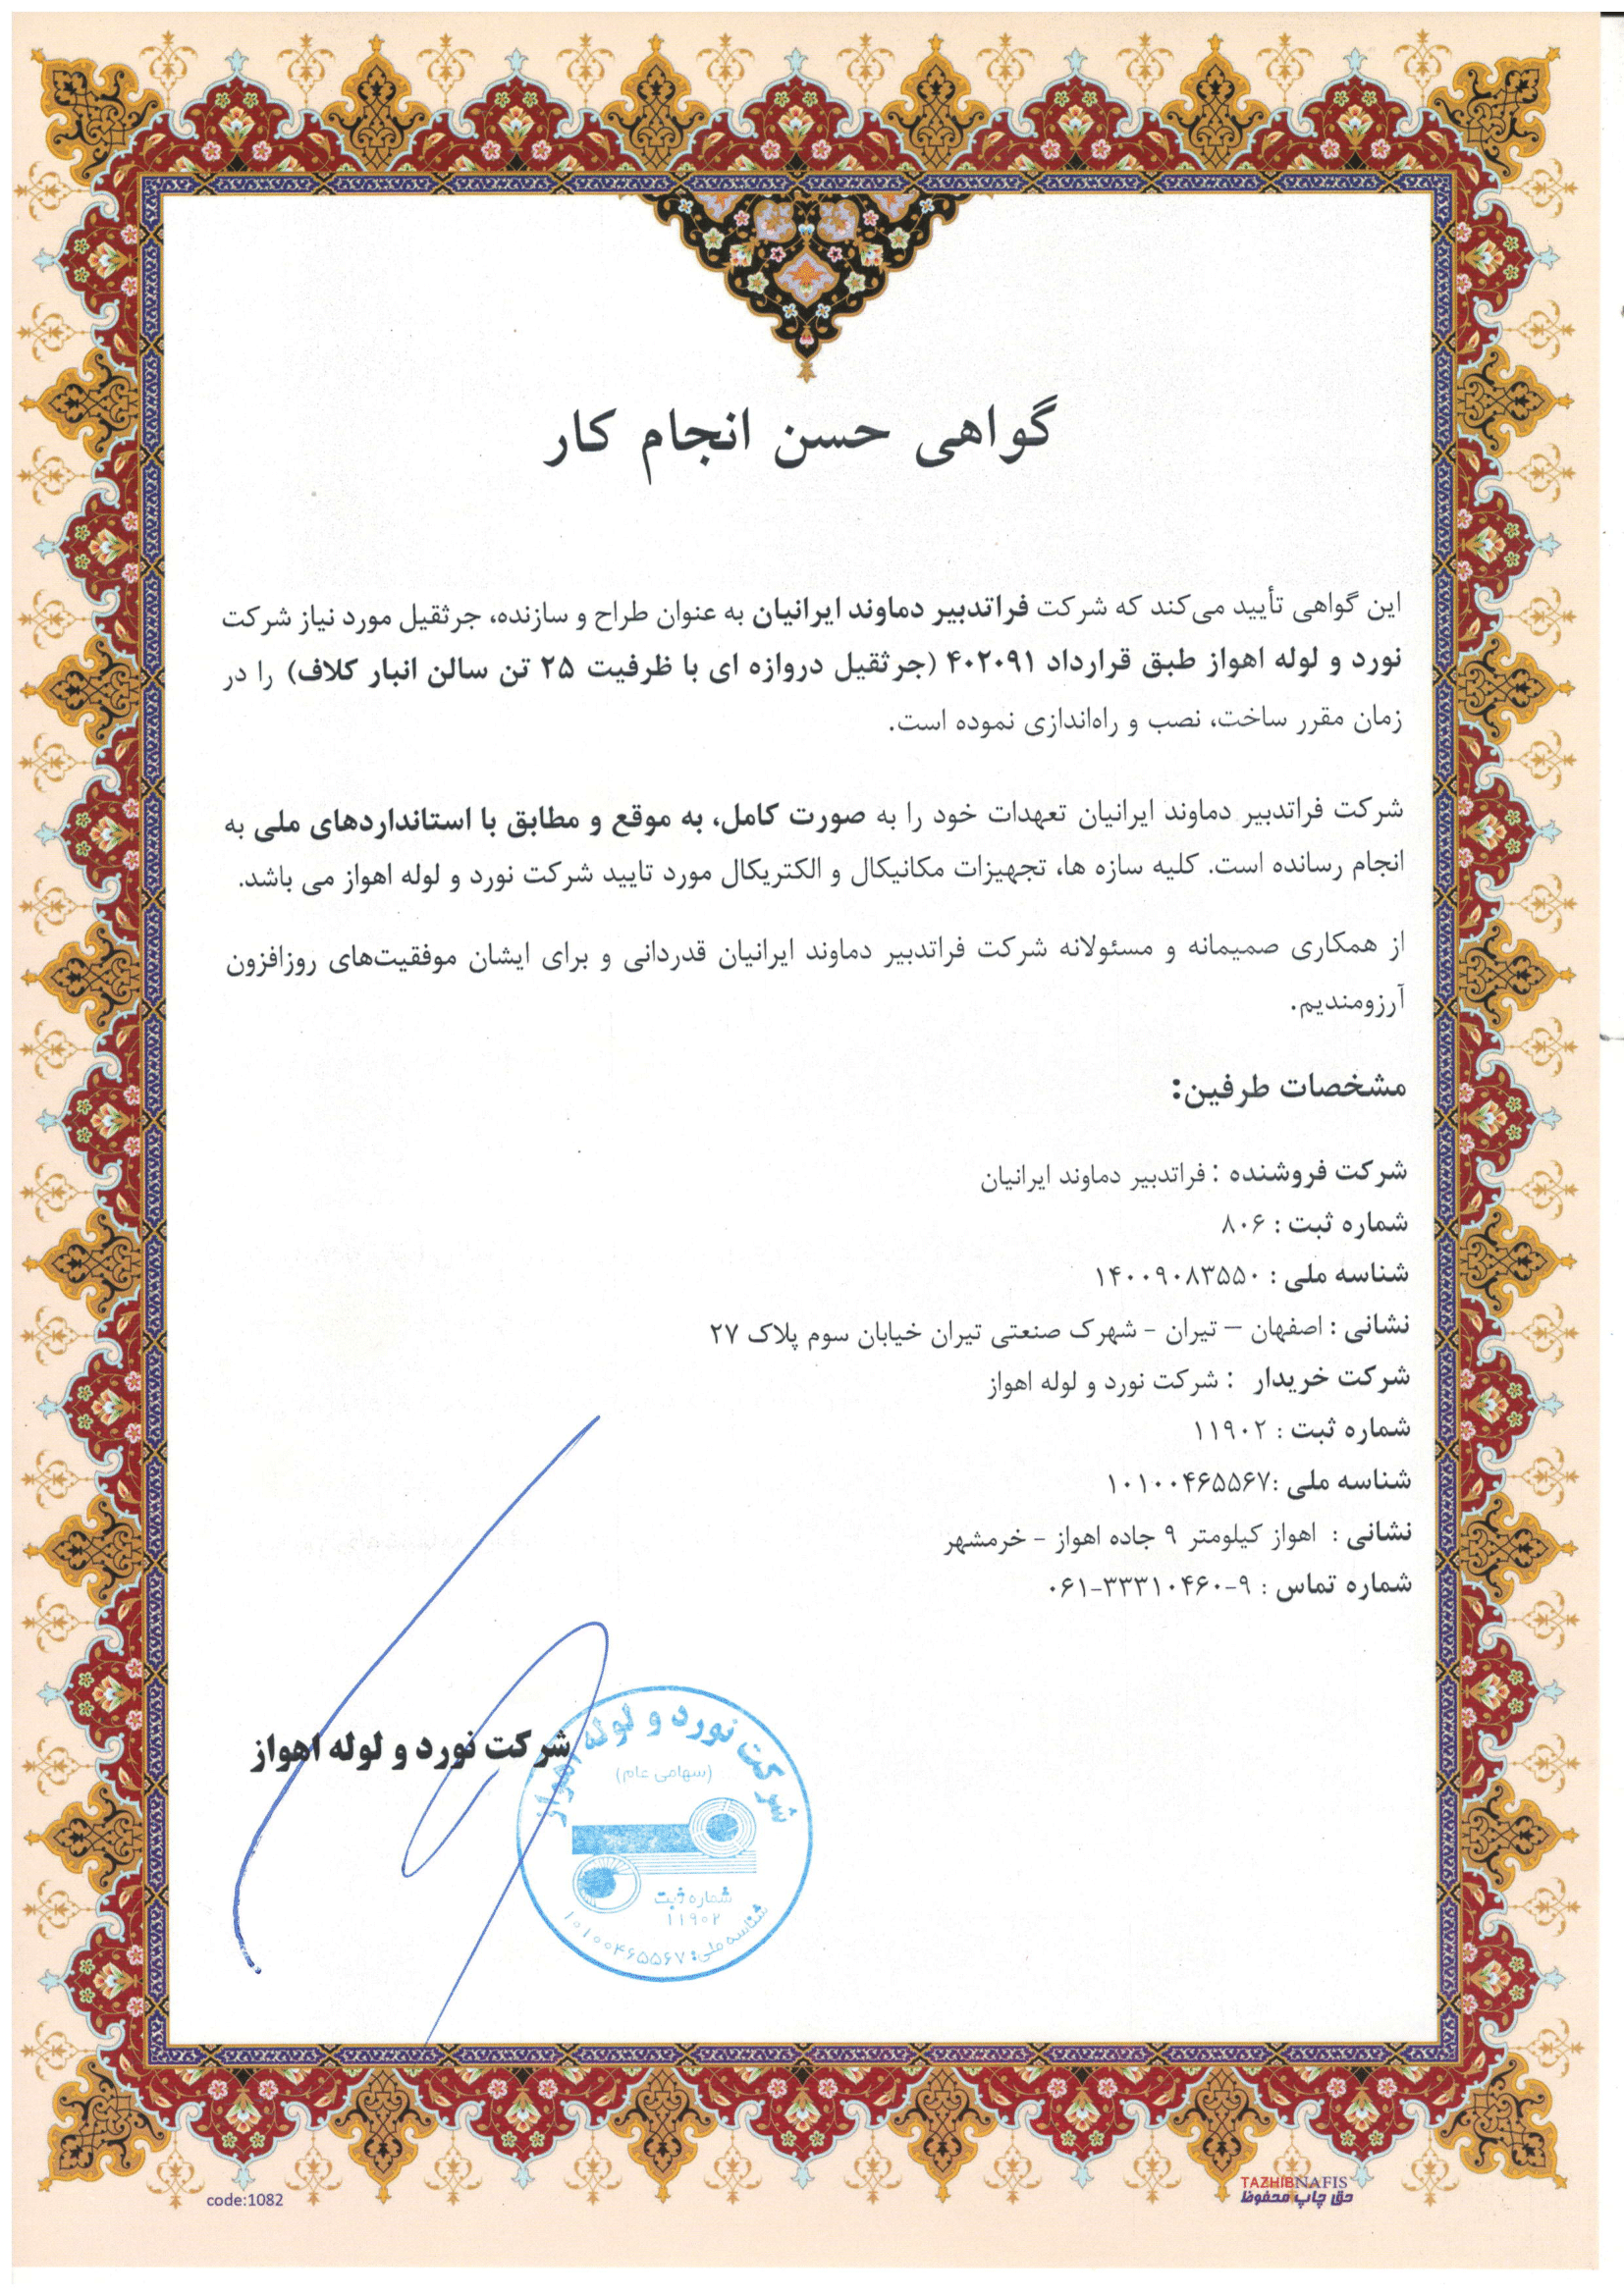 گواهی حسن انجام کار
این گواهی تأیید می‌کند که شرکت فراتدبیر دماوند ایرانیان به عنوان طراح و سازنده، جرثقیل مورد نیاز شرکت
نورد و لوله اهواز طبق قرارداد ۴۰۲۰۹۱ (جرثقیل دروازه ای با ظرفیت ۲۵ تن سالن انبار کلاف) را در
زمان مقرر ساخت، نصب و راه‌اندازی نموده است.
شرکت فراتدبیر دماوند ایرانیان تعهدات خود را به صورت کامل، به موقع و مطابق با استانداردهای ملی به
انجام رسانده است. کلیه سازه ها، تجهیزات مکانیکال و الکتریکال مورد تایید شرکت نورد و لوله اهواز می باشد.
از همکاری صمیمانه و مسئولانه شرکت فراتدبیر دماوند ایرانیان قدردانی و برای ایشان موفقیت‌های روزافزون
آرزومندیم.
مشخصات طرفین:
شرکت فروشنده : فراتدبیر دماوند ایرانیان
شماره ثبت : ۸۰۶
شناسه ملی : ۱۴۰۰۹۰۸۳۵۵۰
نشانی : اصفهان – تیران - شهرک صنعتی تیران خیابان سوم پلاک ۲۷
شرکت خریدار : شرکت نورد و لوله اهواز
شماره ثبت : ۱۱۹۰۲
شناسه ملی :۱۰۱۰۰۴۶۵۵۶۷
نشانی : اهواز کیلومتر ۹ جاده اهواز - خرمشهر
شماره تماس : ۹-۳۳۳۱۰۴۶۰-۰۶۱
شرکت نورد و لوله اهواز
شرکت نورد و لوله اهواز
(سهامی عام)
شماره ثبت
۱۱۹۰۲
شناسه ملی: ۱۰۱۰۰۴۶۵۵۶۷
code:1082
TAZHIBNAFIS
حق چاپ محفوظ